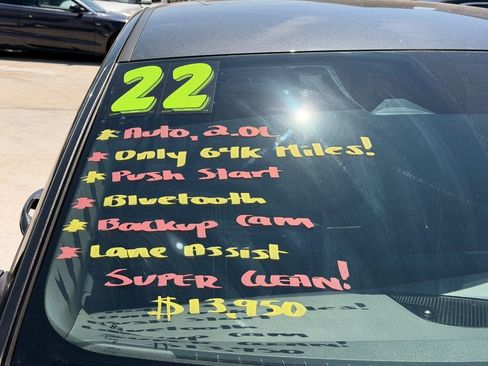 22
* Auto, 2.0L
* Only 64K Miles!
* Push Start
* Bluetooth
* Backup Cam
* Lane Assist
Super Clean!
$13,950